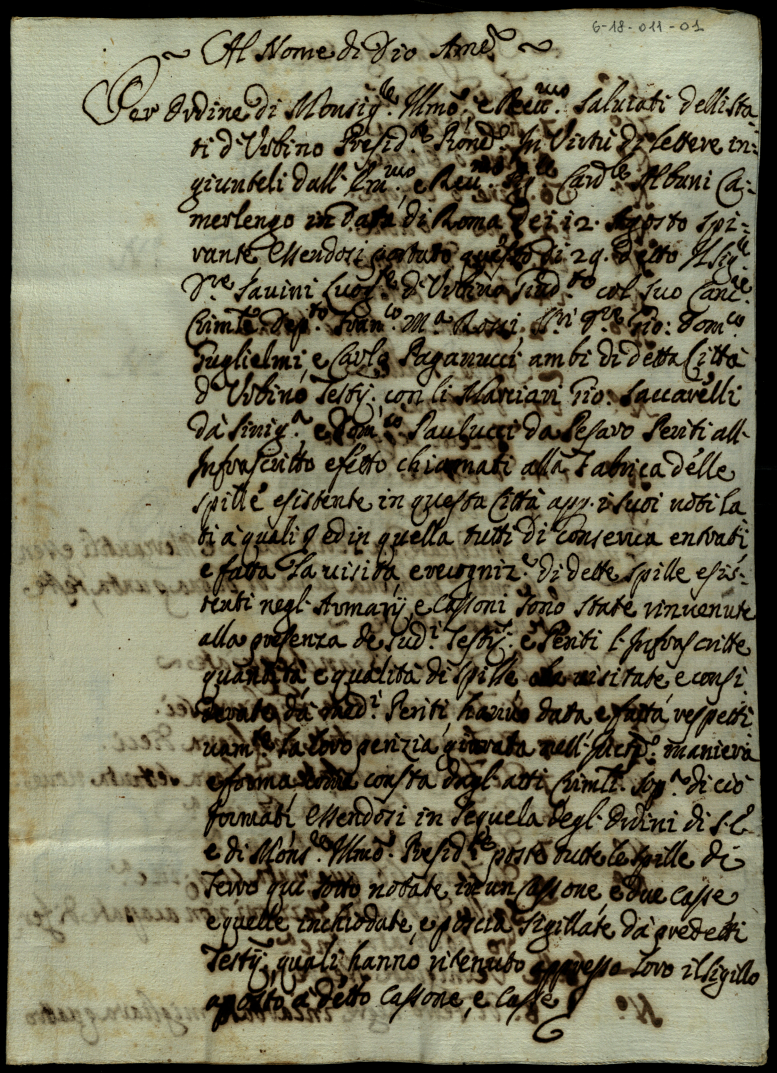 6-18-011-01
Al Nome di Dio Ame.
Per Ordine di Monsig.re Illmo, e Reu.mo Saluiati dellista
ti d'Urbino Presid.te In Virtù di lettere in=
giunteli dall' Em.mo e Reu.mo Sig.r Card.le Albuni Ca=
merlengo in data di Roma dei 12. Agosto spi=
rante essendosi portato questo di 29. detto Il Sig.re
D.re Sauini Luog.te d'Urbino Sud.to col suo Canc.re
Crimle. Dep.to Fran.co M.a Rossi. Gio: Dom.co
Guglielmi, e Carlo Paganucci ambi di detta Città
d'Urbino, Testÿ. con li Marciari Gio: Saccarelli
da Sinig.a e Dom.co Paulucci da Pesaro Periti all'
Infrascritto efetto chiamati alla Fabrica delle
spille esistente in questa Città app.i suoi noti la
ti a quali ed in quella tutti di Conserua entrati
e fatta la uisita e recogniz.e di dette spille esis=
tenti negl'Armarÿ e Cassoni sono state rinuenute
alla presenza de sud.i Testÿ. e Periti l'Infrascritte
quantità e qualità di spille uisitate e consi
derate da med.i Periti hanno data e fatta respetti
uam.te la loro perizia giurata nell' maniera
e forma come consta dagl'atti Crimli. sop.a di ciò
formati, essendosi in sequela degl'Ordini di S.E.
e di Mons.re Illmo. Presid.te poste tutte le spille di
ferro qui sotto notate in un Cassone, e due Casse
e quelle inchiodate, e poscia sigillate da predetti
Testÿ, quali hanno ritenuto appresso loro il sigillo
aposto a detto Cassone, e Casse